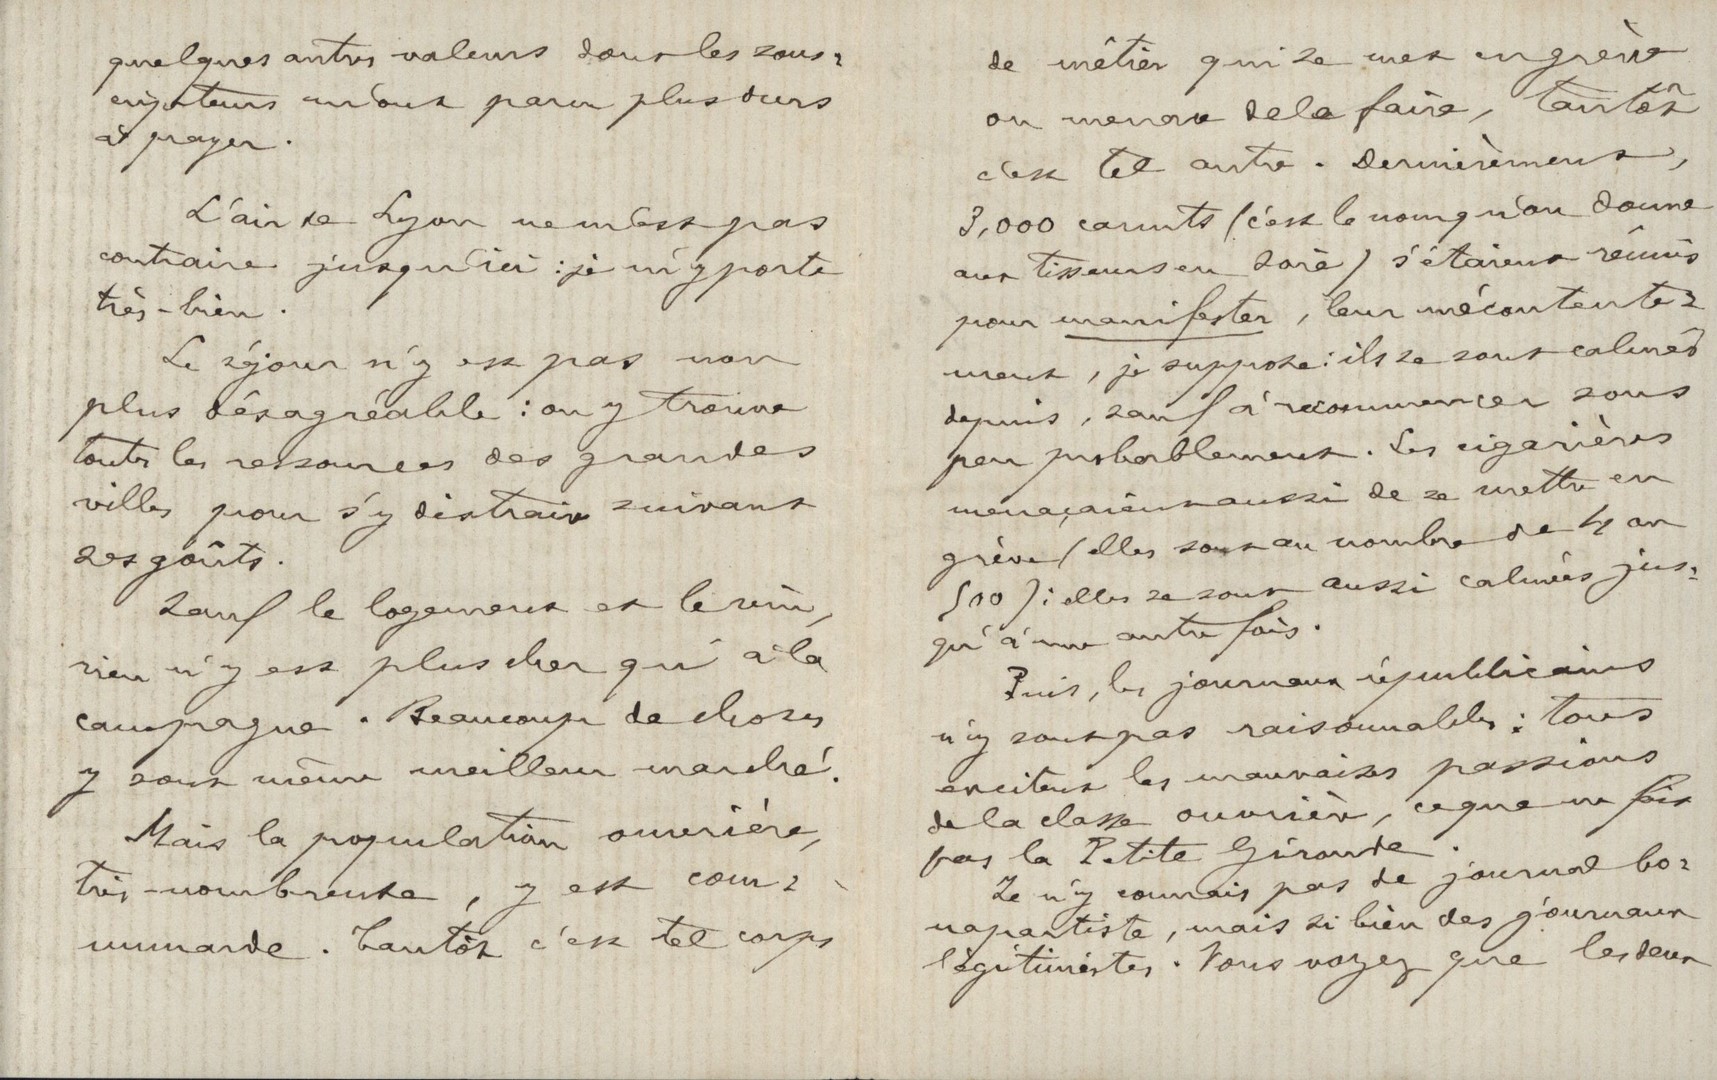 quelques autres valeurs dont les sous-
cripteurs m'ont paru plus durs
à payer.
L'air de Lyon ne m'est pas
contraire jusqu'ici : je m'y porte
très-bien.
Le séjour n'y est pas non
plus désagréable : on y trouve
toutes les ressources des grandes
villes pour s'y distraire suivant
ses goûts.
Sauf le logement et le vin,
rien n'y est plus cher qu'à la
campagne. Beaucoup de choses
y sont même meilleur marché.
Mais la population ouvrière,
très-nombreuse, y est com-
munarde. Tantôt c'est tel corps
de métier qui se met en grève
ou menace de le faire, tantôt
c'est tel autre. Dernièrement,
3,000 canuts (c'est le nom qu'on donne
aux tisseurs en soie) s'étaient réunis
pour manifester, leur mécontente-
ment, je suppose : ils se sont calmés
depuis, sauf à recommencer sous
peu probablement. Les cigarières
menaçaient aussi de se mettre en
grève (elles sont au nombre de 4 ou
500) : elles se sont aussi calmées jus-
qu'à une autre fois.
Puis, les journaux républicains
n'y sont pas raisonnables : tous
excitent les mauvaises passions
de la classe ouvrière, ce que ne fait
pas la Petite Gironde.
Je n'y connais pas de journal bo-
napartiste, mais si bien des journaux
légitimistes. Vous voyez que les deux